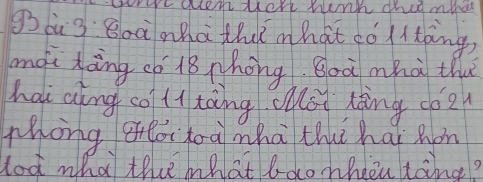 Bài 3: Toà nhà thứ nhất có 11 tầng,
mỗi tầng có 18 phòng. Toà nhà thứ
hai cũng có 11 tầng. Mỗi tầng có 21
phòng. Hỏi toà nhà thứ hai hơn
toà nhà thứ nhất bao nhiêu tầng?